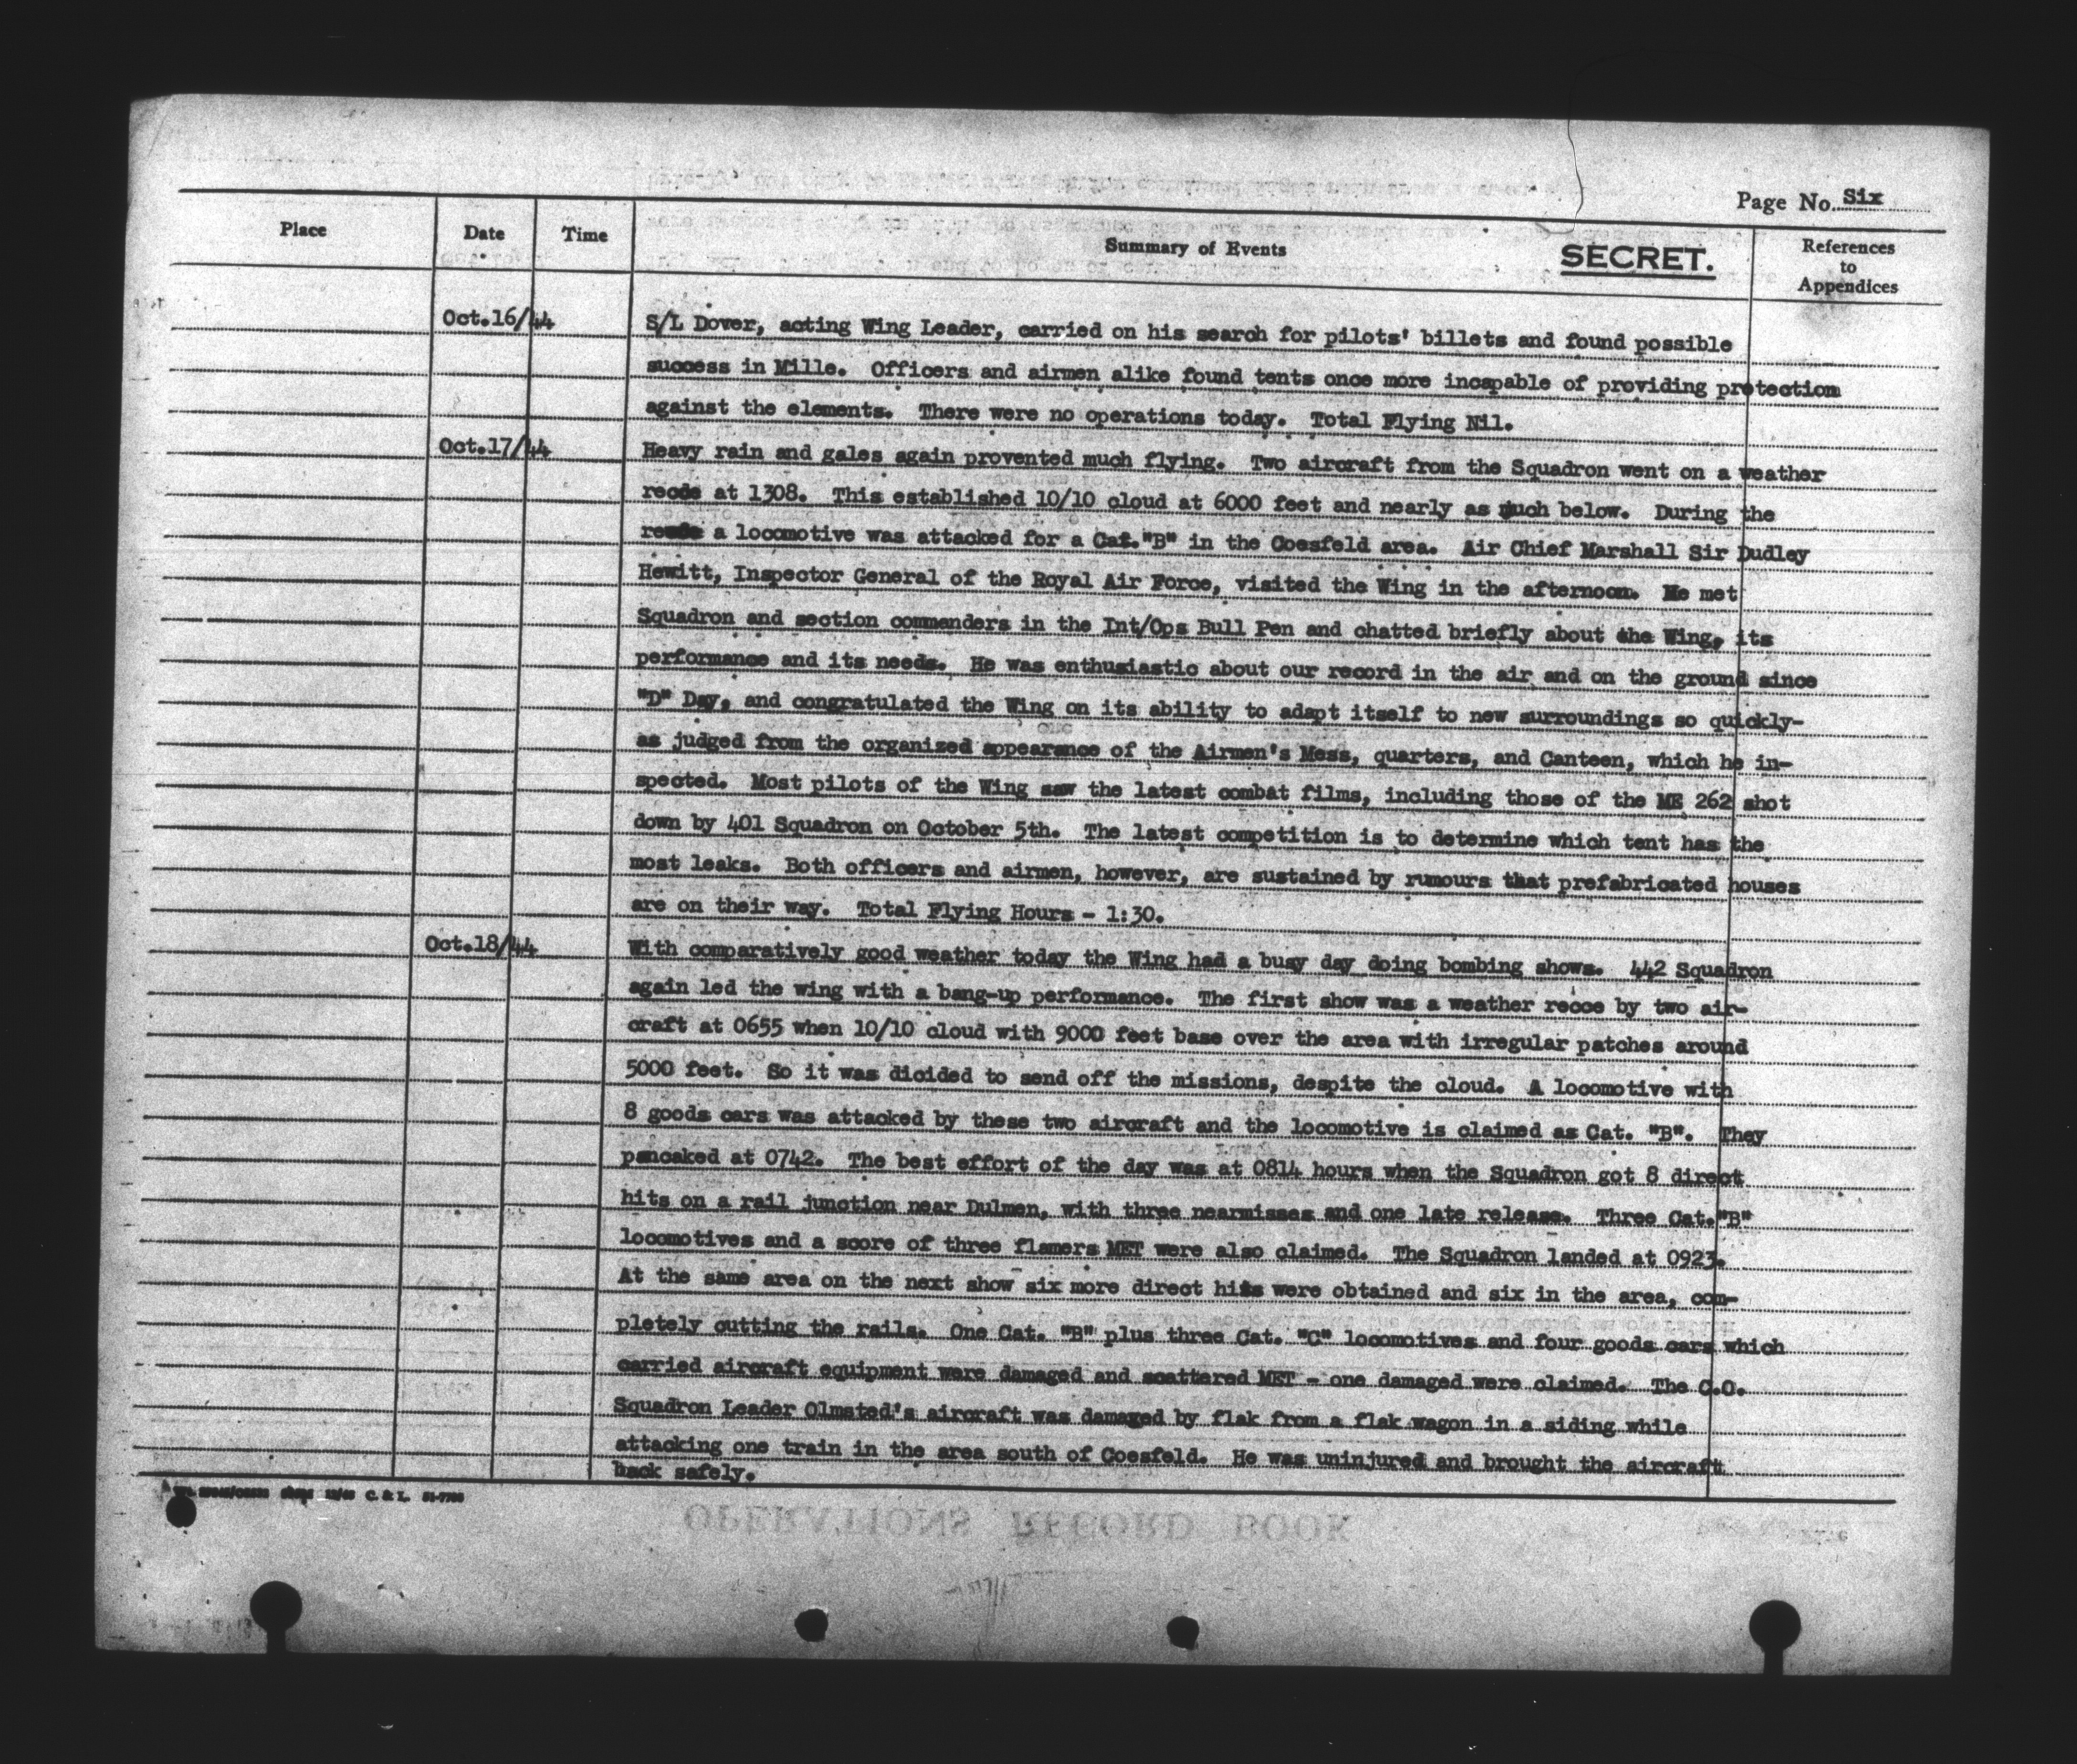 Page No. Six
Place Date Time Summary of Events SECRET. References to Appendices
Oct.16/44 S/L Dover, acting Wing Leader, carried on his search for pilots' billets and found possible
success in Mille. Officers and airmen alike found tents once more incapable of providing protection
against the elements. There were no operations today. Total Flying Nil.
Oct.17/44 Heavy rain and gales again provented much flying. Two aircraft from the Squadron went on a weather
recce at 1308. This established 10/10 cloud at 6000 feet and nearly as much below. During the
a locomotive was attacked for a Cat."B" in the Coesfeld area. Air Chief Marshall Sir Dudley
Hewitt, Inspector General of the Royal Air Force, visited the Wing in the afternoon. He met
Squadron and section commanders in the Int/Ops Bull Pen and chatted briefly about the Wing, its
performance and its needs. He was enthusiastic about our record in the air and on the ground since
"D" Day, and congratulated the Wing on its ability to adapt itself to new surroundings so quickly-
as judged from the organized appearance of the Airmen's Mess, quarters, and Canteen, which he in-
spected. Most pilots of the Wing saw the latest combat films, including those of the ME 262 shot
down by 401 Squadron on October 5th. The latest competition is to determine which tent has the
most leaks. Both officers and airmen, however, are sustained by rumours that prefabricated houses
are on their way. Total Flying Hours - 1:30.
Oct.18/44 With comparatively good weather today the Wing had a busy day doing bombing shows. 442 Squadron
again led the wing with a bang-up performance. The first show was a weather recce by two air-
craft at 0655 when 10/10 cloud with 9000 feet base over the area with irregular patches around
5000 feet. So it was dicided to send off the missions, despite the cloud. A locomotive with
8 goods cars was attacked by these two aircraft and the locomotive is claimed as Cat. "B". They
pancaked at 0742. The best effort of the day was at 0814 hours when the Squadron got 8 direct
hits on a rail junction near Dulmen, with three nearmisses and one late release. Three Cat."B"
locomotives and a score of three flamers MET were also claimed. The Squadron landed at 0923.
At the same area on the next show six more direct hits were obtained and six in the area, com-
pletely cutting the rails. One Cat. "B" plus three Cat. "C" locomotives and four goods cars which
carried aircraft equipment were damaged and scattered MET - one damaged were claimed. The C.O.
Squadron Leader Olmsted's aircraft was damaged by flak from a flak wagon in a siding while
attacking one train in the area south of Coesfeld. He was uninjured and brought the aircraft
back safely.
C. & L. 51-7700
OPERATIONS RECORD BOOK